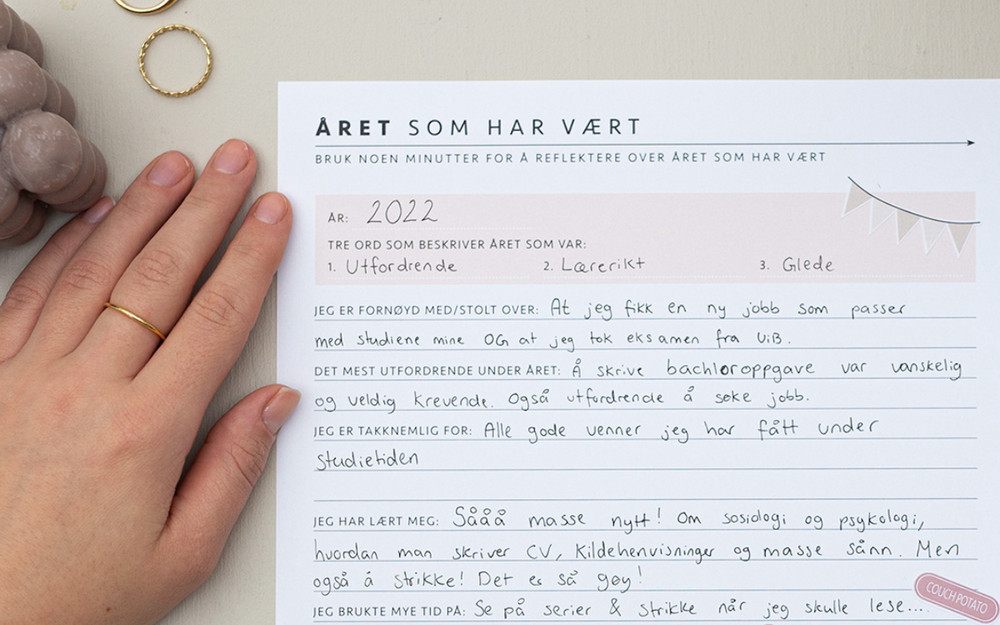 ÅRET SOM HAR VÆRT
BRUK NOEN MINUTTER FOR Å REFLEKTERE OVER ÅRET SOM HAR VÆRT
ÅR: 2022
TRE ORD SOM BESKRIVER ÅRET SOM VAR:
1. Utfordrende 2. Lærerikt 3. Glede
JEG ER FORNØYD MED/STOLT OVER: At jeg fikk en ny jobb som passer
med studiene mine OG at jeg tok eksamen fra UiB.
DET MEST UTFORDRENDE UNDER ÅRET: Å skrive bachloroppgave var vanskelig
og veldig krevende. Også utfordrende å søke jobb.
JEG ER TAKKNEMLIG FOR: Alle gode venner jeg har fått under
studietiden
JEG HAR LÆRT MEG: Sååå masse nytt! Om sosiologi og psykologi,
hvordan man skriver CV, Kildehenvisninger og masse sånn. Men
også å strikke! Det er så gøy!
JEG BRUKTE MYE TID PÅ: Se på serier & strikke når jeg skulle lese...
COUCH POTATO